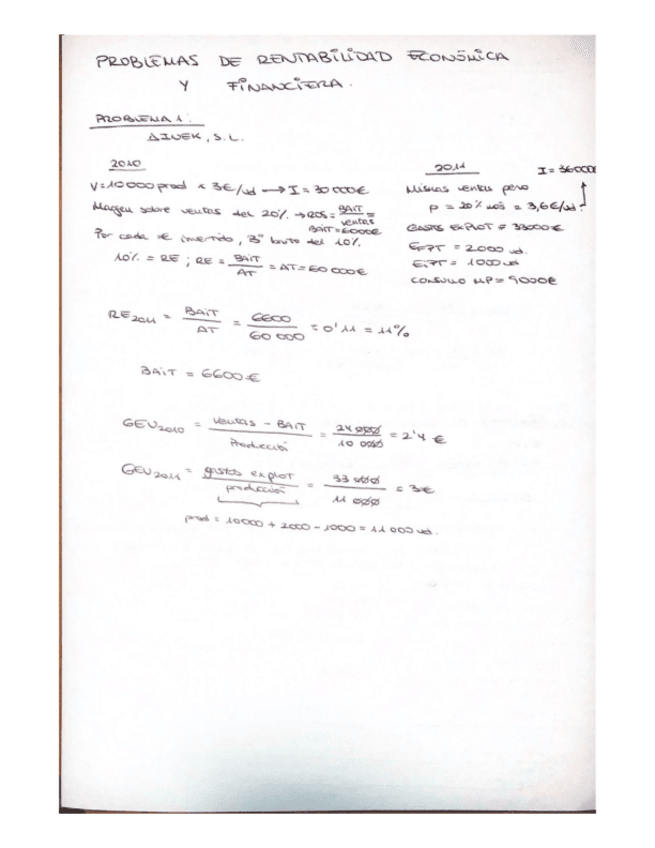 PROBLEMAS DE RENTABILIDAD ECONÓMICA
Y FINANCIERA.
PROBLEMA 1:
, S.L.
2010
V=10000 prod x 3€/ud → I = 30 000€
Margen sobre ventas del 20% → ROS = BAIT / ventas =
BAIT = 6000€
Por cada € invertido, Bº bruto del 10%.
10% = RE ; RE = BAIT / AT = AT = 60 000€
2011 I = 36000€
Mismas ventas pero
p = 20% más = 3,6€/ud.
GASTOS EXPLOT = 33000€
EfPT = 2000 ud.
EiPT = 1000 ud
CONSUMO MP = 9000€
RE2011 = BAIT / AT = 6600 / 60 000 = 0'11 = 11%
BAIT = 6600€
GEU2010 = ventas - BAIT / Producción = 24 000 / 10 000 = 2'4 €
GEU2011 = gastos explot / producción = 33 000 / 11 000 = 3€
prod = 10000 + 2000 - 1000 = 11 000 ud.